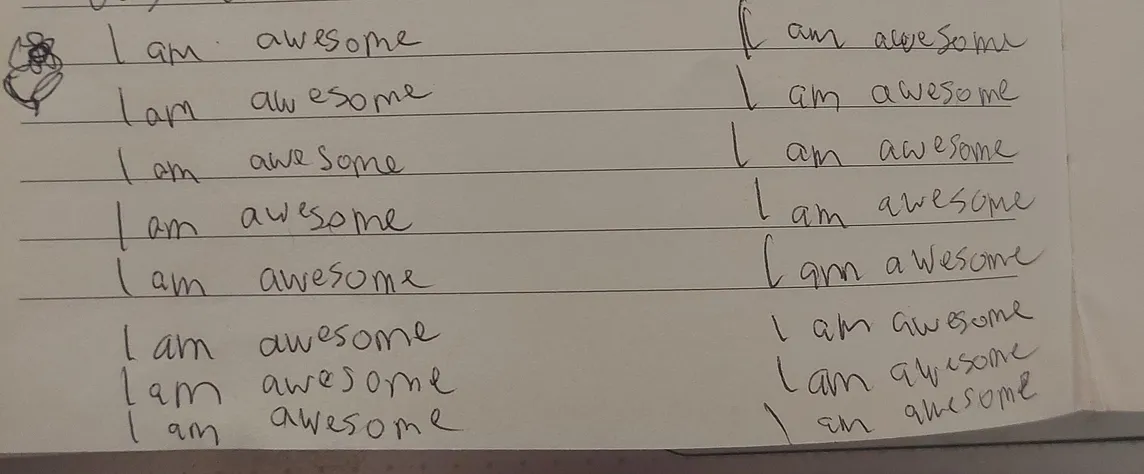 I am awesome I am awesome
I am awesome I am awesome
I am awesome I am awesome
I am awesome I am awesome
I am awesome I am awesome
I am awesome I am awesome
I am awesome I am awesome
I am awesome I am awesome